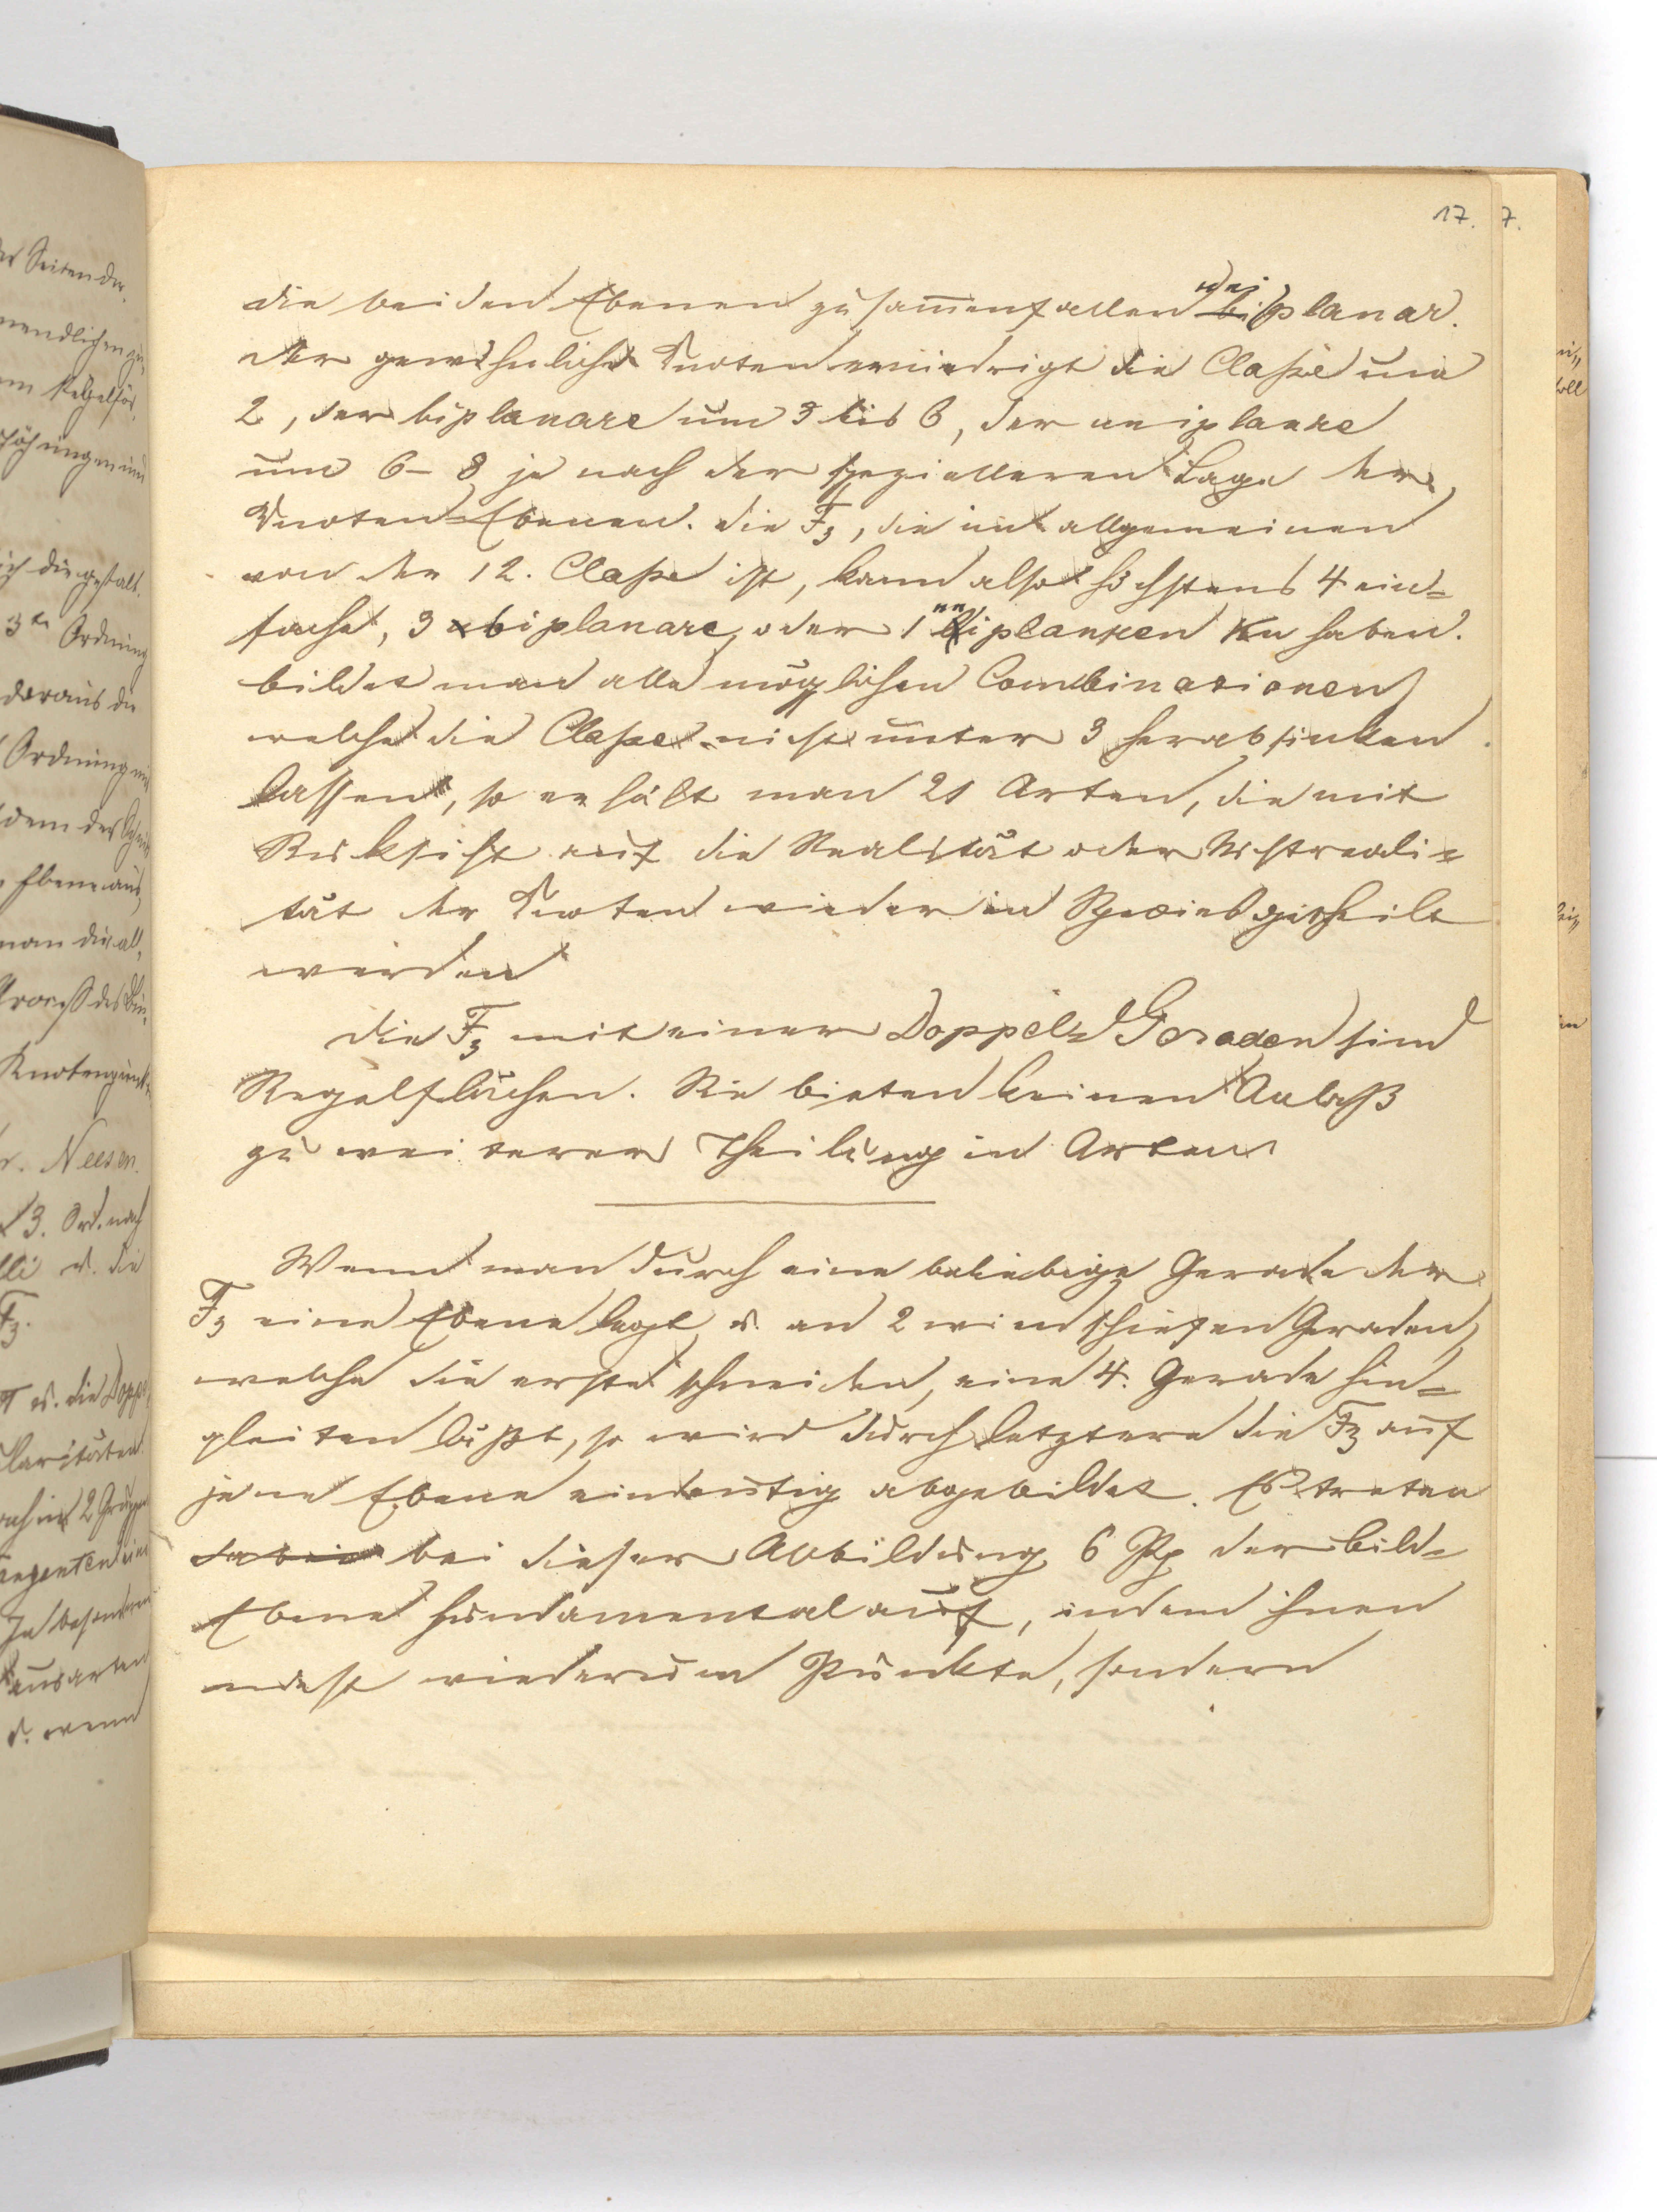 17.
die beiden Ebenen zusam̄enfallen uniplanar.
Der gewöhnliche Knoten erniedrigt die Claße um
2, der biplanare um 3 bis 6, der uniplanare
um 6–8 je nach der spezielleren Lage der
Knoten-Ebenen. Die F3, die im allgemeinen
von der 12. Claße ist, kann also höchstens 4 ein=
fache, 3 biplanare, oder 1 uniplanaren Kn haben.
Bildet man alle möglichen Combinationen
welche die Claße nicht unter 3 herabsinken
lassen, so erhält man 21 Arten, die mit
Rücksicht auf die Realität oder Nichtreali=
tät der Knoten wieder in Species getheilt
werden
Die F3 mit einer Doppel=Geraden sind
Regelflächen. Sie bieten keinen Anlaß
zu weiterer Theilung in Arten
Wenn man durch eine beliebige Gerade der
F3 eine Ebene legt u. an 2 windschiefen Geraden,
welche die erste schneiden, eine 4. Gerade hin=
gleiten läßt, so wird durch letztere die F3 auf
jene Ebene eindeutig abgebildet. Es treten
bei dieser Abbildung 6 Pp der Bild=
Ebene fundamental auf, indem ihnen
nicht wiederum Punkte, sondern